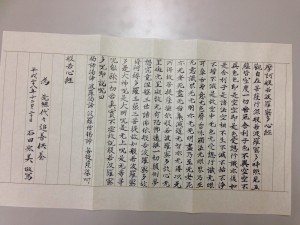 摩訶般若波羅蜜多心経
観自在菩薩行深般若波羅蜜多時照見五
蘊皆空度一切苦厄舎利子色不異空空不
異色色即是空空即是色受想行識亦復如
是舎利子是諸法空相不生不滅不垢不浄
不増不減是故空中无色无受想行識无眼
耳鼻舌身意无色声香味触法无眼界乃至
无意識界无无明亦无无明尽乃至无老死
亦无老死尽无苦集滅道无智亦无得以无
所得故菩提薩埵依般若波羅蜜多故心无
罣礙无罣礙故无有恐怖遠離一切顛倒夢
想究竟涅槃三世諸仏依般若波羅蜜多故
得阿耨多羅三藐三菩提故知般若波羅蜜
多是大神呪是大明呪是无上呪是无等等
呪能除一切苦真実不虚故説般若波羅蜜
多呪即説呪曰
羯諦羯諦波羅羯諦波羅僧羯諦菩提薩婆訶
般若心経
為 先祖代々追善供養
平成 年十二月 日 石田 美敬写